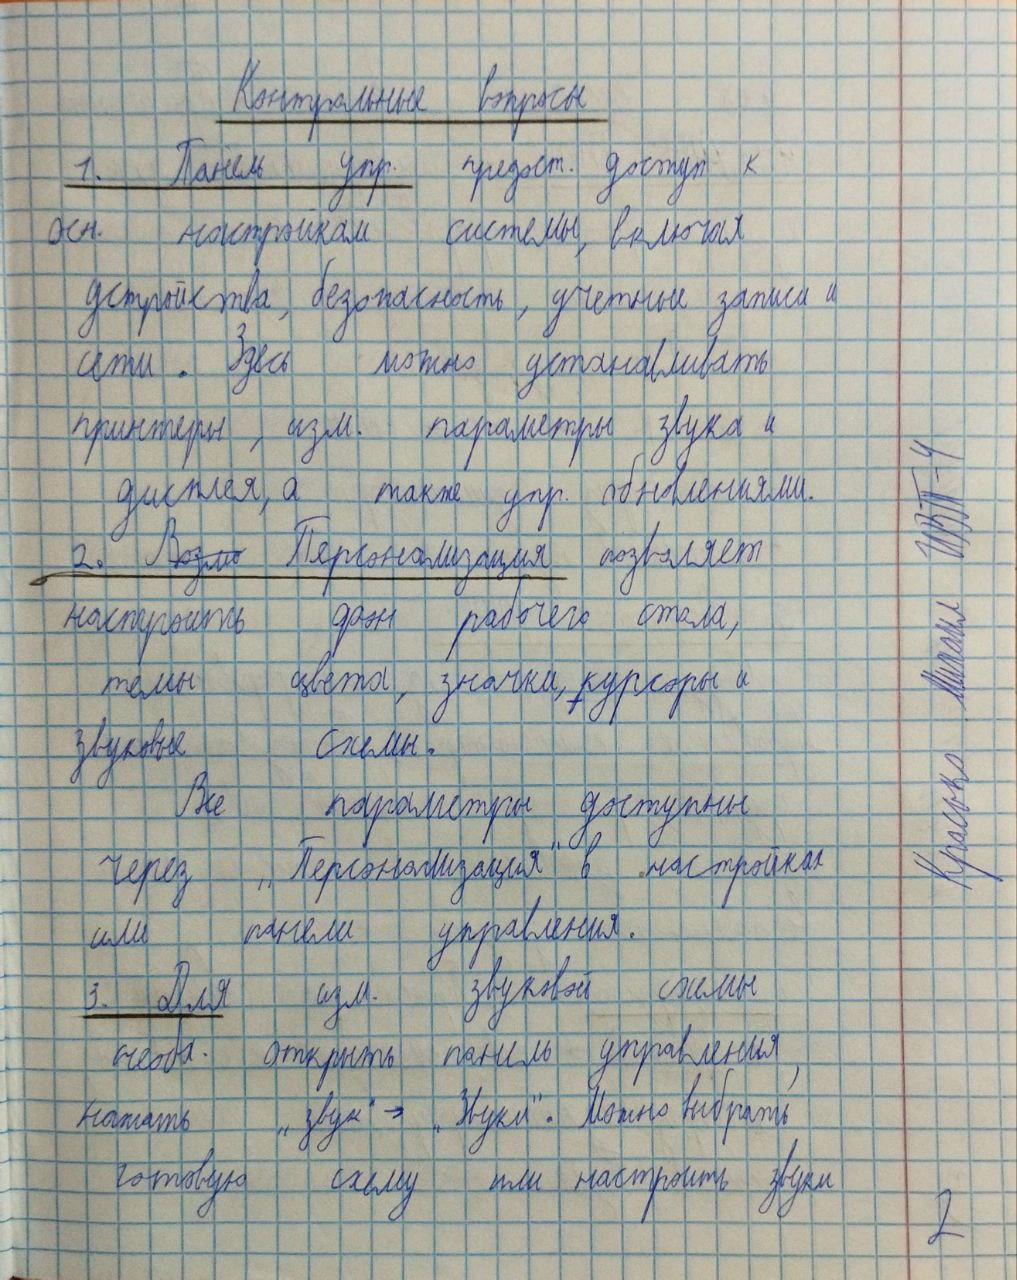 Контрольные вопросы
1. Панель упр. предост. доступ к
осн. настройкам системы, включая
устройства, безопасность, учетные записи и
сети. Здесь можно устанавливать
принтеры, изм. параметры звука и
дисплея, а также упр. обновлениями.
2. Возмо Персонализация позволяет
настроить фон рабочего стола,
темы цвета, значки, курсоры и
звуковые схемы.
Все параметры доступны
через „Персонализация" в настройках
или панели управления.
3. Для изм. звуковой схемы
необх. открыть панель управления,
нажать „звук" → „Звуки". Можно выбрать
готовую схему или настроить звуки
Михаил
2